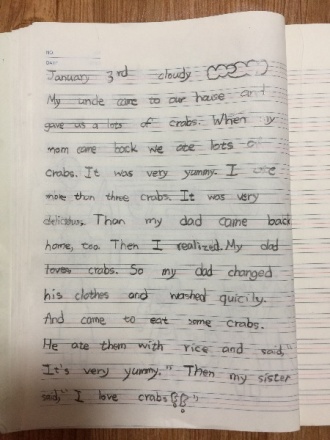 NO.
DATE
January 3rd cloudy
My uncle came to our house and
gave us a lots of crabs. When my
mom came back we ate lots o
crabs. It was very yummy. I ate
more than three crabs. It was very
delicious. Than my dad came back
home, too. Then I realized. My dad
loves crabs. So my dad changed
his clothes and washed quicily.
And came to eat some crabs.
He ate them with rice and said, "
It's very yummy." Then my sister
said, " I love crabs!!"